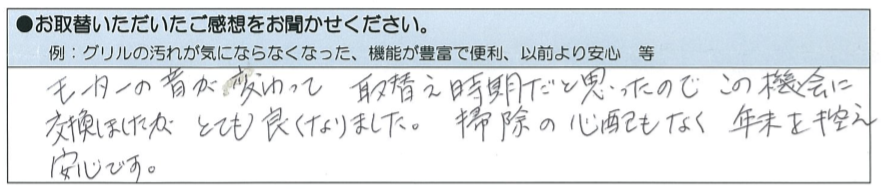 ●お取替いただいたご感想をお聞かせください。
例：グリルの汚れが気にならなくなった、機能が豊富で便利、以前より安心　等
モーターの音が変わって　取替え時期だと思ったので　この機会に
交換しましたが　とても良くなりました。　掃除の心配もなく　年末を控え
安心です。